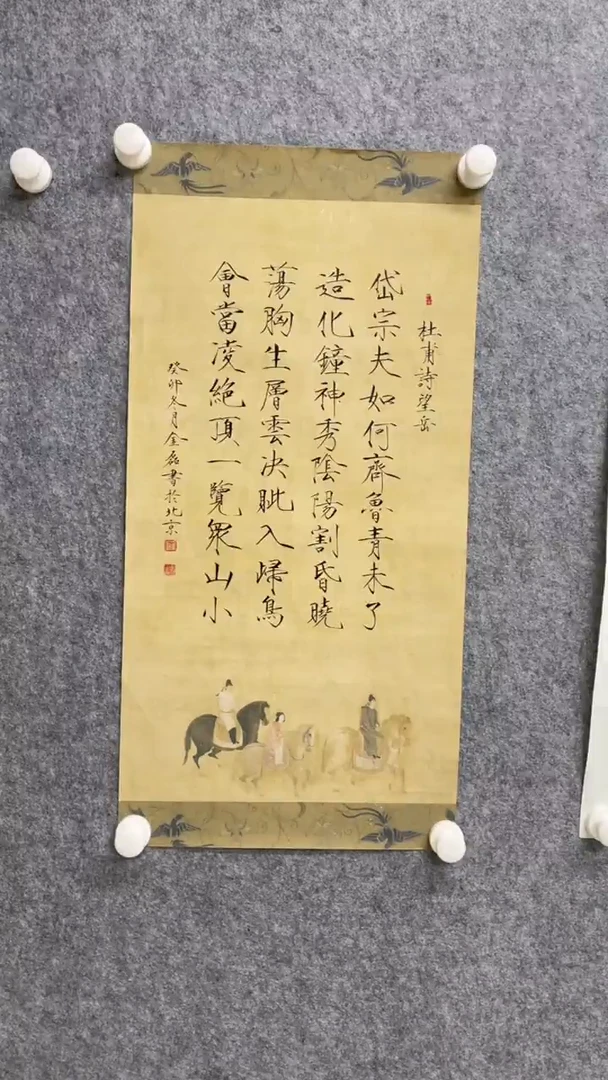 杜甫詩望岳
岱宗夫如何齊魯青未了
造化鐘神秀陰陽割昏曉
蕩胸生層雲決眦入歸鳥
會當凌絕頂一覽眾山小
癸卯冬月金磊書於北京